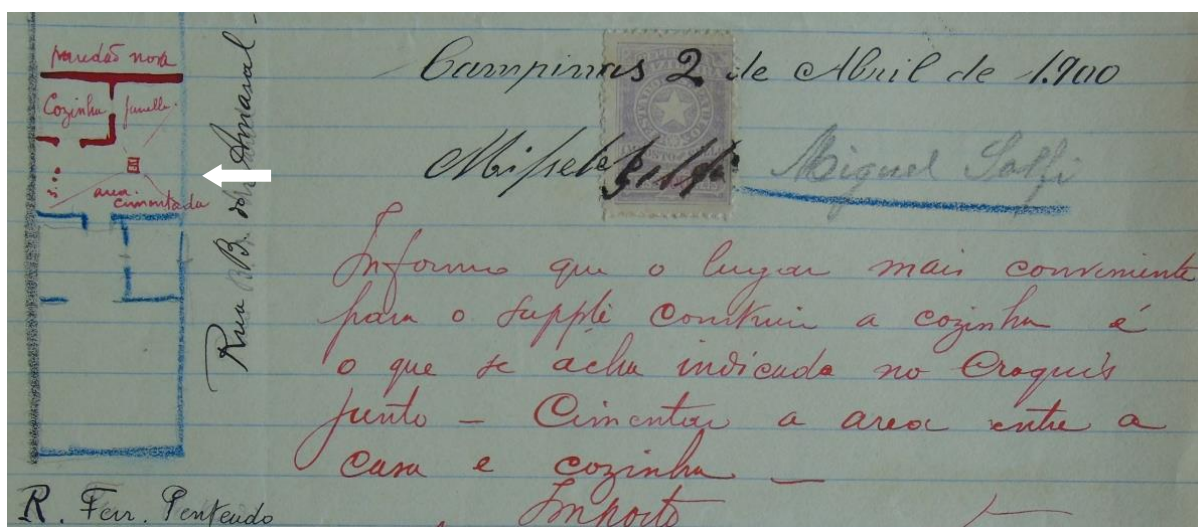 paredão nova
Cozinha janella
3.10
area cimentada
Rua B. do Amaral
Campinas 2 de Abril de 1.900
Miguel Salfi
Informo que o lugar mais conveniente
para o supplte construir a cozinha é
o que se acha indicado no Croquis
junto – Cimentar a area entre a
casa e cozinha –
Imposto
R. Ferr. Penteado